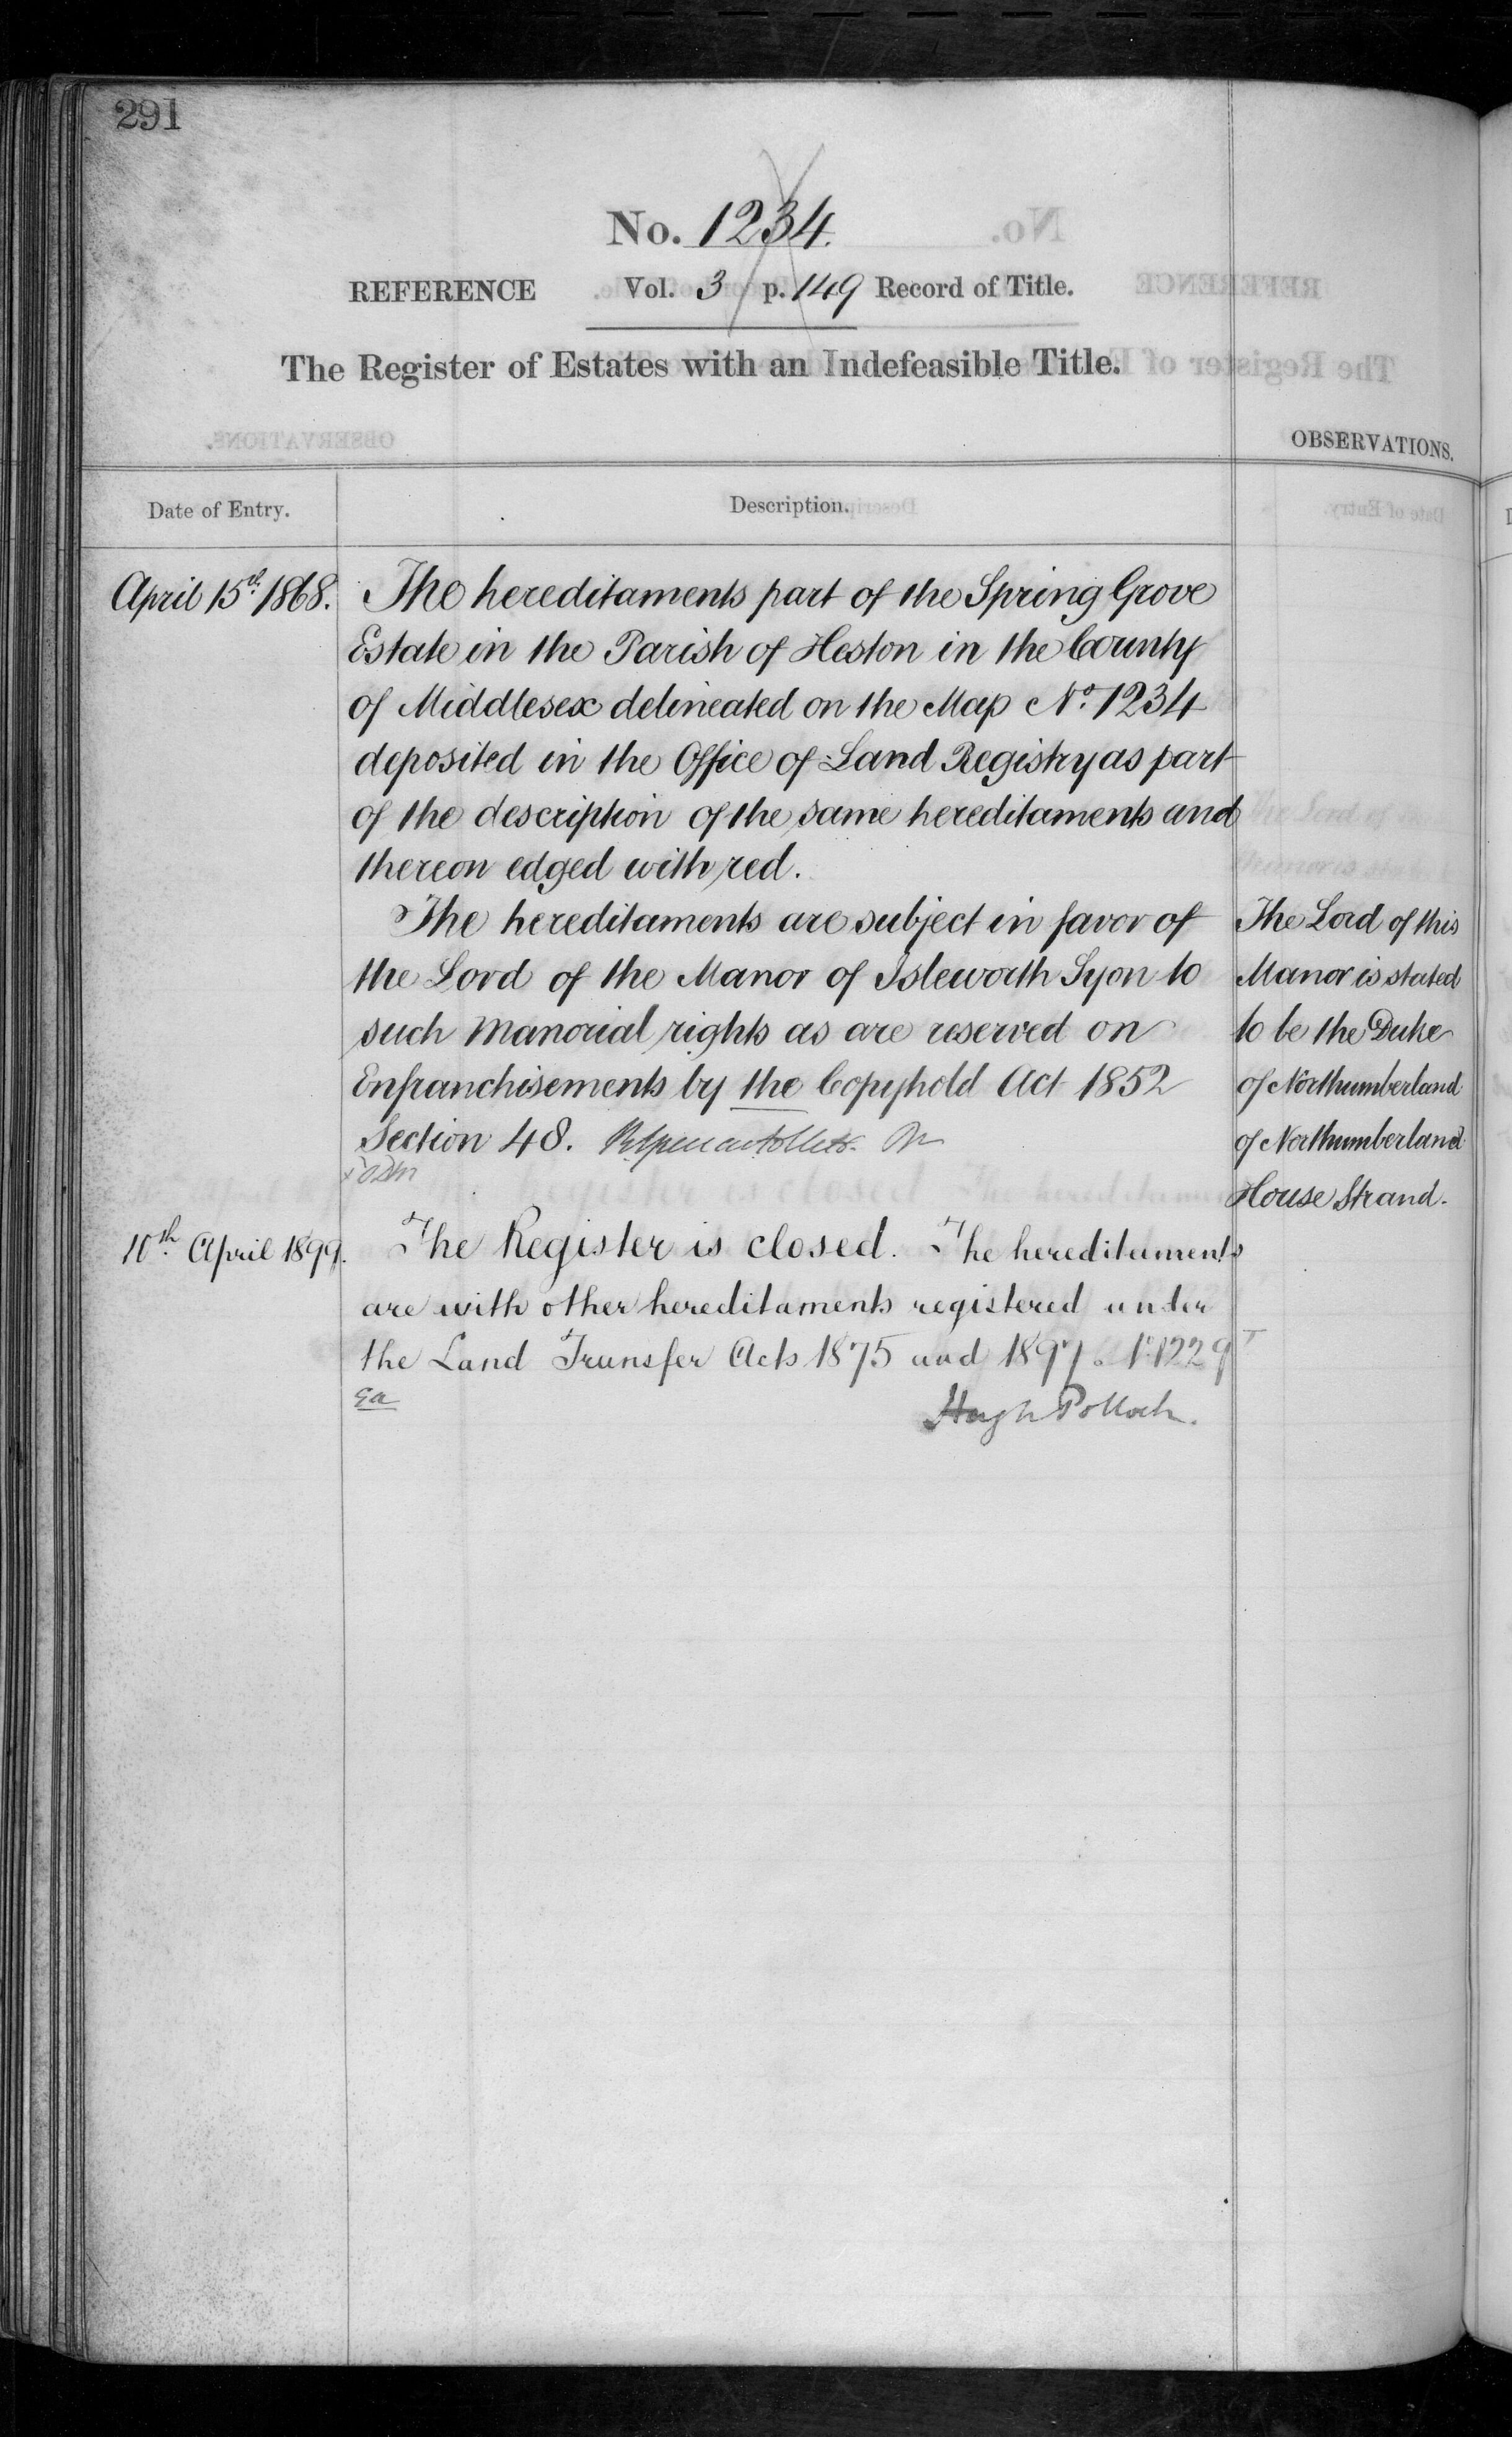 291
No. 1234.
REFERENCE Vol. 3 p. 149 Record of Title.
The Register of Estates with an Indefeasible Title.
OBSERVATIONS.
Date of Entry. Description.
April 15th 1868. The hereditaments part of the Spring Grove
Estate in the Parish of Heston in the County
of Middlesex delineated on the Map No. 1234
deposited in the Office of Land Registry as part
of the description of the same hereditaments and
thereon edged with red.
The hereditaments are subject in favor of
the Lord of the Manor of Isleworth Syon to
such manorial rights as are reserved on
Enfranchisements by the Copyhold Act 1852
Section 48.
The Lord of this
Manor is stated
to be the Duke
of Northumberland
of Northumberland
House Strand.
10th April 1899. The Register is closed. The hereditaments
are with other hereditaments registered under
the Land Transfer Acts 1875 and 1897. No 1229
Hugh Pollock.